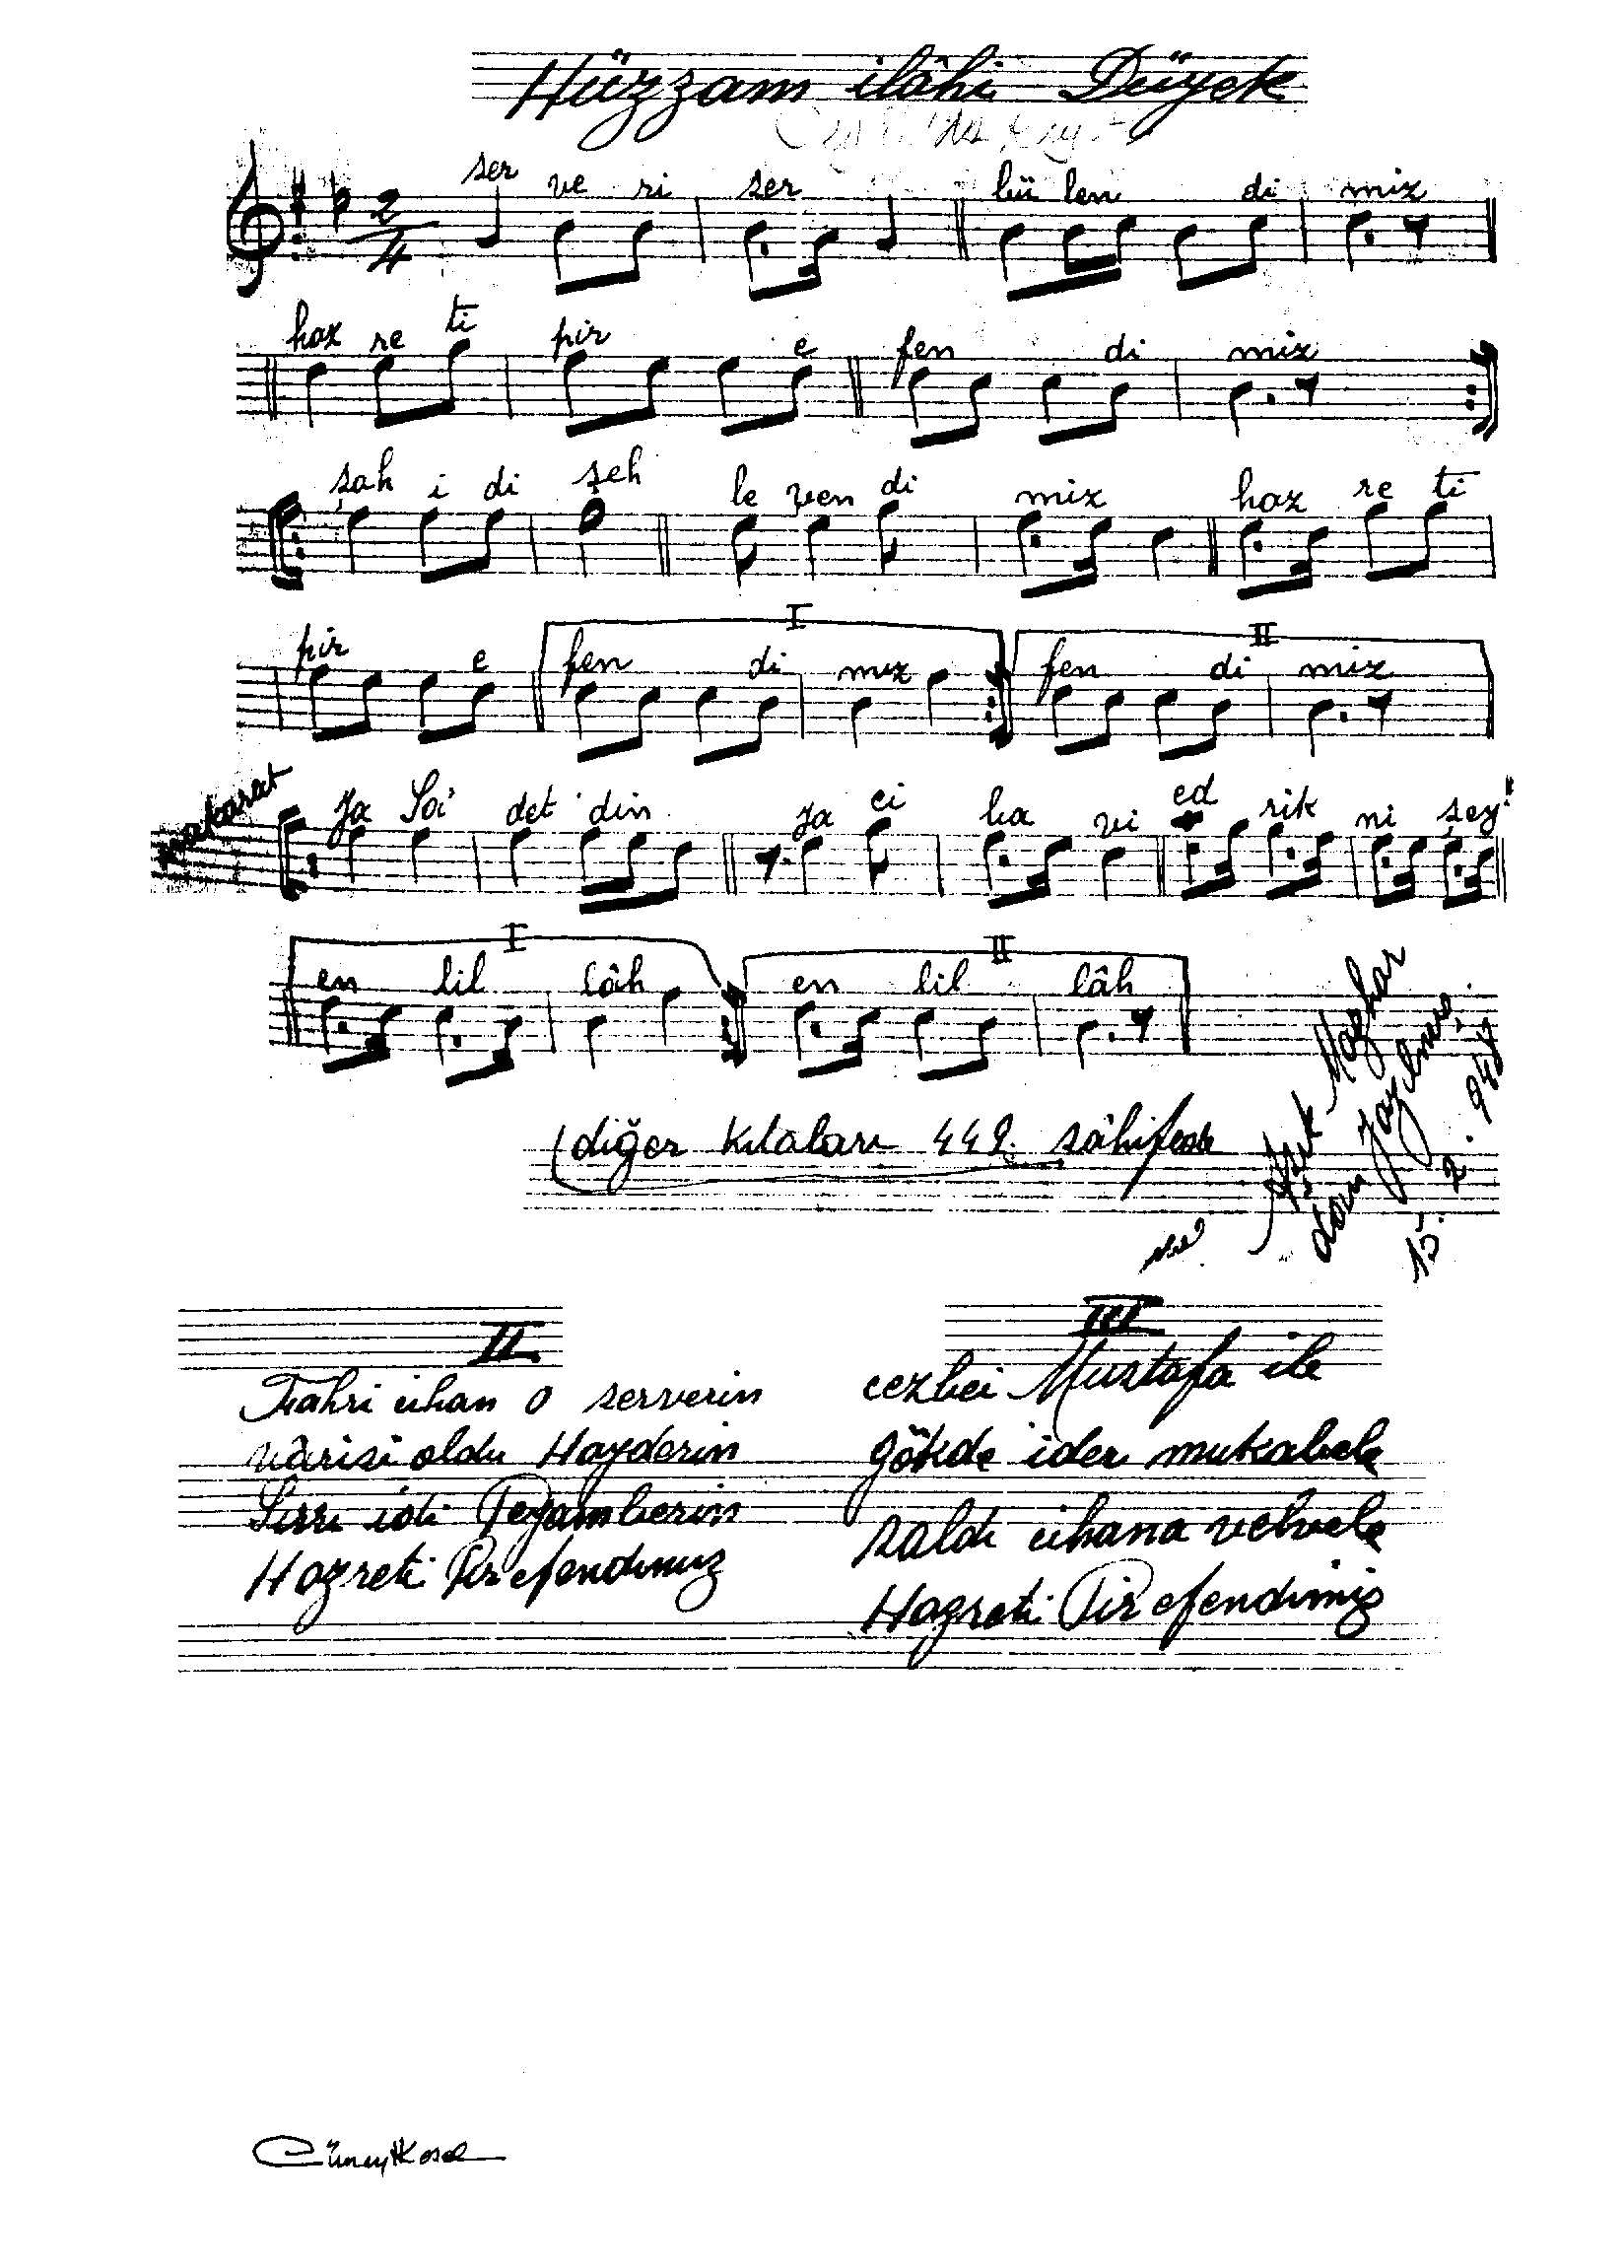 Hüzzam ilâhi Düyek
2/4
ser ve ri ser bü len di miz
haz re ti pir e fen di miz
şah i di şeh le ven di miz haz re ti
I II
pir e fen di miz fen di miz
nakarat
Ya Sai det din ya ci ba vi ed rik ni şey'
I II
en lil lâh en lil lâh
(diğer kıtaları 442. sâhifede
Aşık Mazhar
dan yazılmış.
15. 2. 948
II
Fahri cihan o serverin
vârisi oldu Hayderin
Sırrı idi Peyamberin
Hazreti Pir efendimiz
III
cezbei Mustafa ile
gökde ider mukabele
saldı cihana velvele
Hazreti Pir efendimiz
Cüneyt Kosal